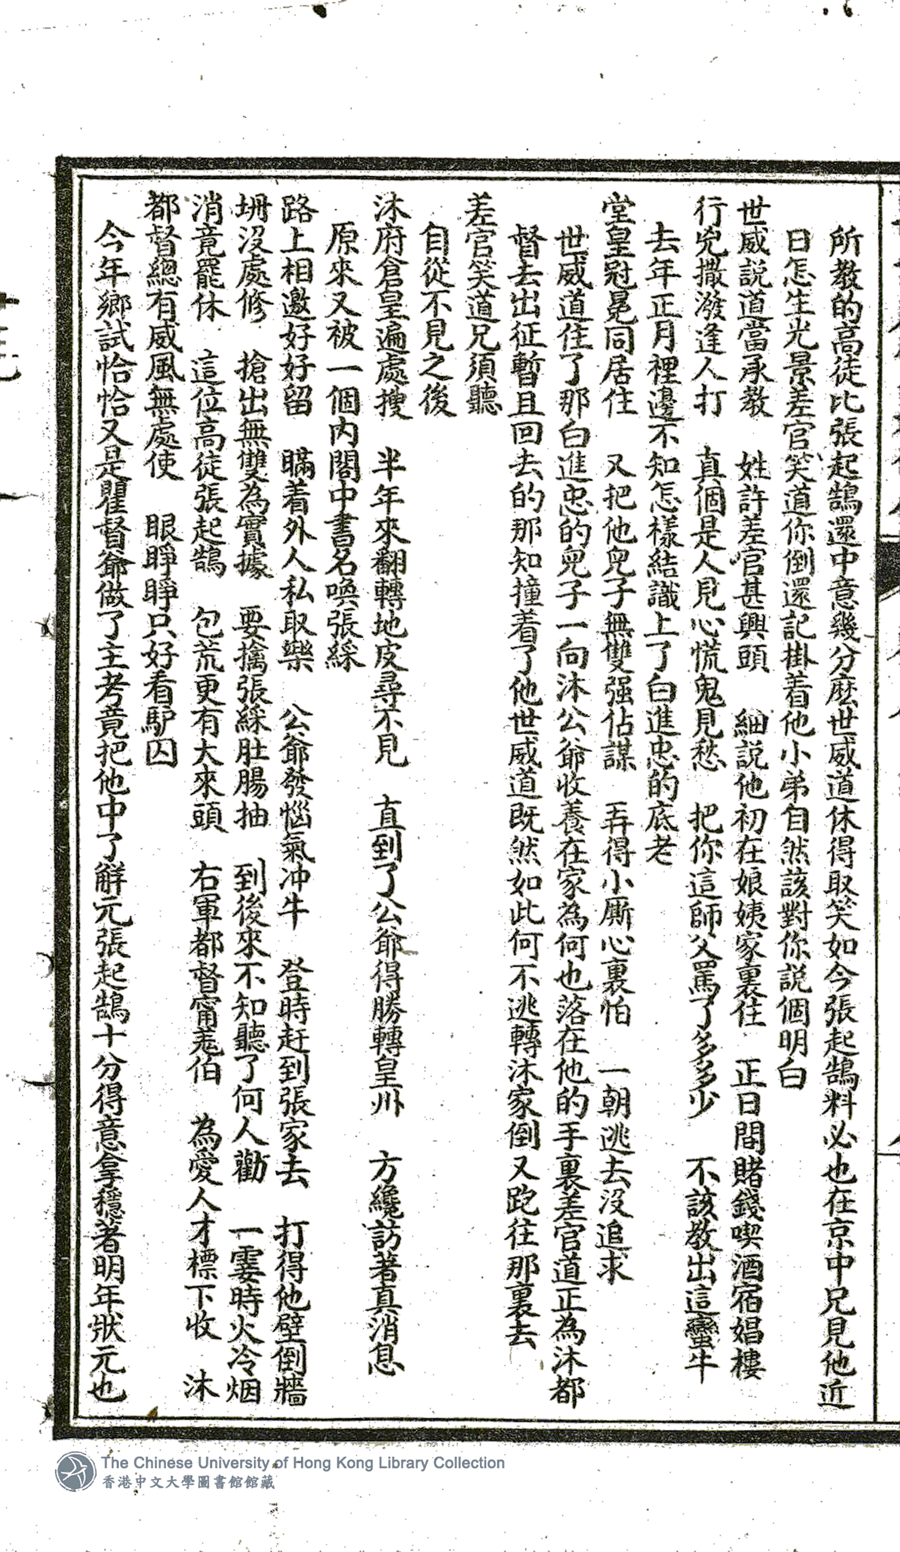 所教的高徒比張起鵠還中意幾分麽世威道休得取笑如今張起鵠料必也在京中兄見他近
日怎生光景差官笑道你倒還記掛着他小弟自然該對你説個明白
世威説道當承教 姓許差官甚興頭 細説他初在娘姨家裏住 正日間賭錢喫酒宿娼樓
行兇撒潑逢人打 真個是人見心慌鬼見愁 把你這師父罵了多多少 不該教出這蠻牛
去年正月裡邊不知怎樣結識上了白進忠的底老
堂皇冠冕同居住 又把他兒子無雙强佔謀 弄得小厮心裏怕 一朝逃去沒追求
世威道住了那白進忠的兒子一向沐公爺收養在家為何也落在他的手裏差官道正為沐都
督去出征暫且回去的那知撞着了他世威道既然如此何不逃轉沐家倒又跑往那裏去
差官笑道兄須聽
自從不見之後
沐府倉皇遍處搜 半年來翻轉地皮尋不見 直到了公爺得勝轉皇州 方纔訪著真消息
原來又被一個内閣中書名喚張綵
路上相邀好好留 瞞着外人私取樂 公爺發惱氣冲牛 登時赶到張家去 打得他壁倒牆
坍沒處修 搶出無雙為實據 要擒張綵肚腸抽 到後來不知聽了何人勸 一霎時火冷烟
消竟罷休 這位高徒張起鵠 包荒更有大來頭 右軍都督甯羗伯 為愛人才標下收 沐
都督總有威風無處使 眼睜睜只好看馿囚
今年鄉試恰恰又是瞿督爺做了主考竟把他中了解元張起鵠十分得意拿穩著明年狀元也
The Chinese University of Hong Kong Library Collection
香港中文大學圖書館館藏